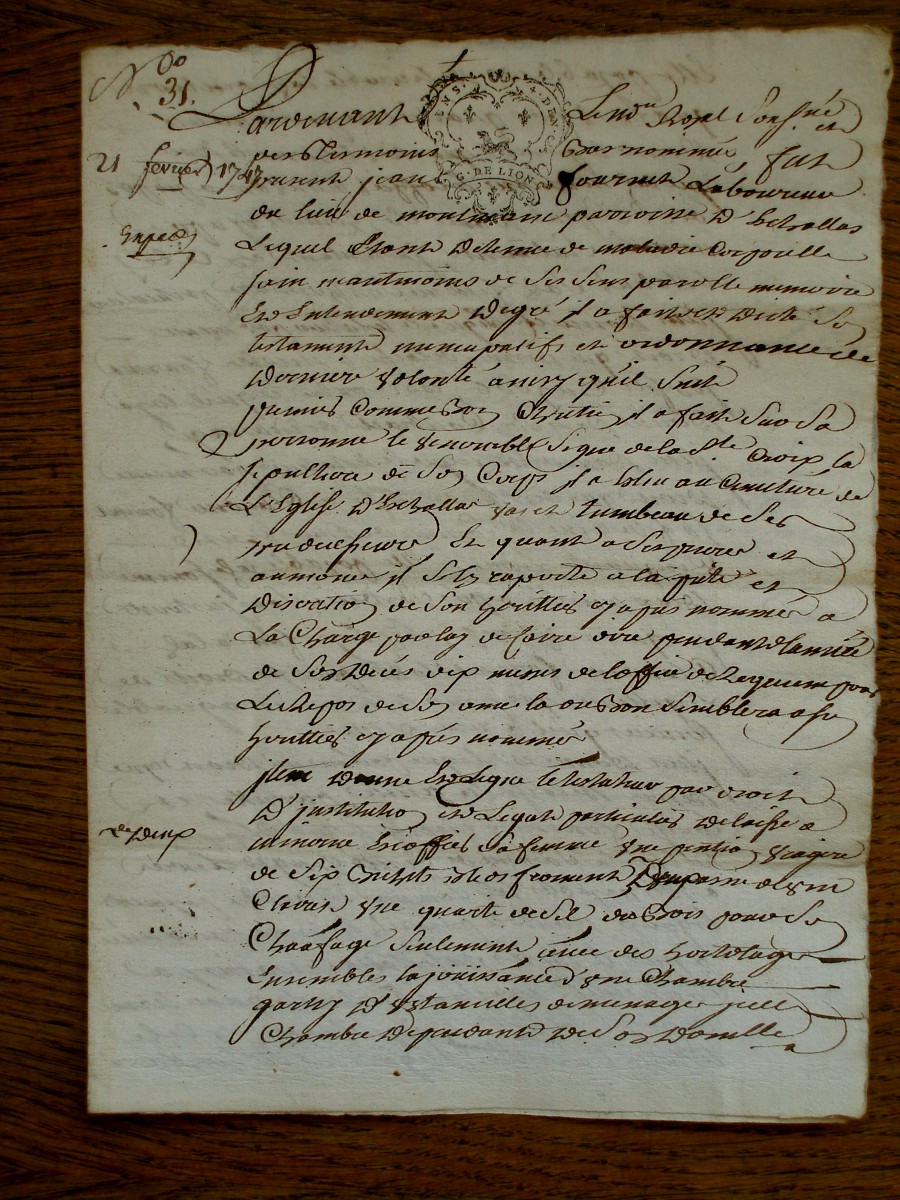 N.o
31.
Pardevant Le no.re Royal Sousigné et
21 fevrier 1747
presents temoins bas nommés fut
G. DE LION
present jean fournet Laboureur
du lieu de montmain parroisse D'Echallas
Expedié
Lequel Etant Detenue de maladie Corporelle
sain neantmoins de Ses Sens parolle memoire
Et Entendement De gré il a fait et Dicté Son
testament nuncupatif et ordonnance de
Derniere volonté ainsy qu'il Suit
premier Comme bon Chretien il a fait Sur Sa
personne le venerable Signe de la S.te Croix la
Sepulture de Son Corps il a Eslu au Cimetiere de
L'Eglise D'Echallas et tumbeau de Ses
predecesseurs Et quant a Ses prieres et
aumones il S'en raporte a la pieté et
Discretion de Son heritier cy apres nommé a
La Charge par luy de faire dire pendant l'année
de Son Decés dix messes de l'office de Requiem pour
Le Repos de Son ame la ou bon Semblera a son
heritier cy apres nommé
jtem Donne Et Legue le testateur par droit
D'institution et Legat particulier Delaisse a
sa femme une pention viagere
de Six Bichets bled froment
Chacun une de Bois pour Son
Chauffage Seulement des hortolages
Ensembles la jouissance d'une Chambre
garny D'Ustancilles de menage jcelle
Chambre Dependante de Son Domicille